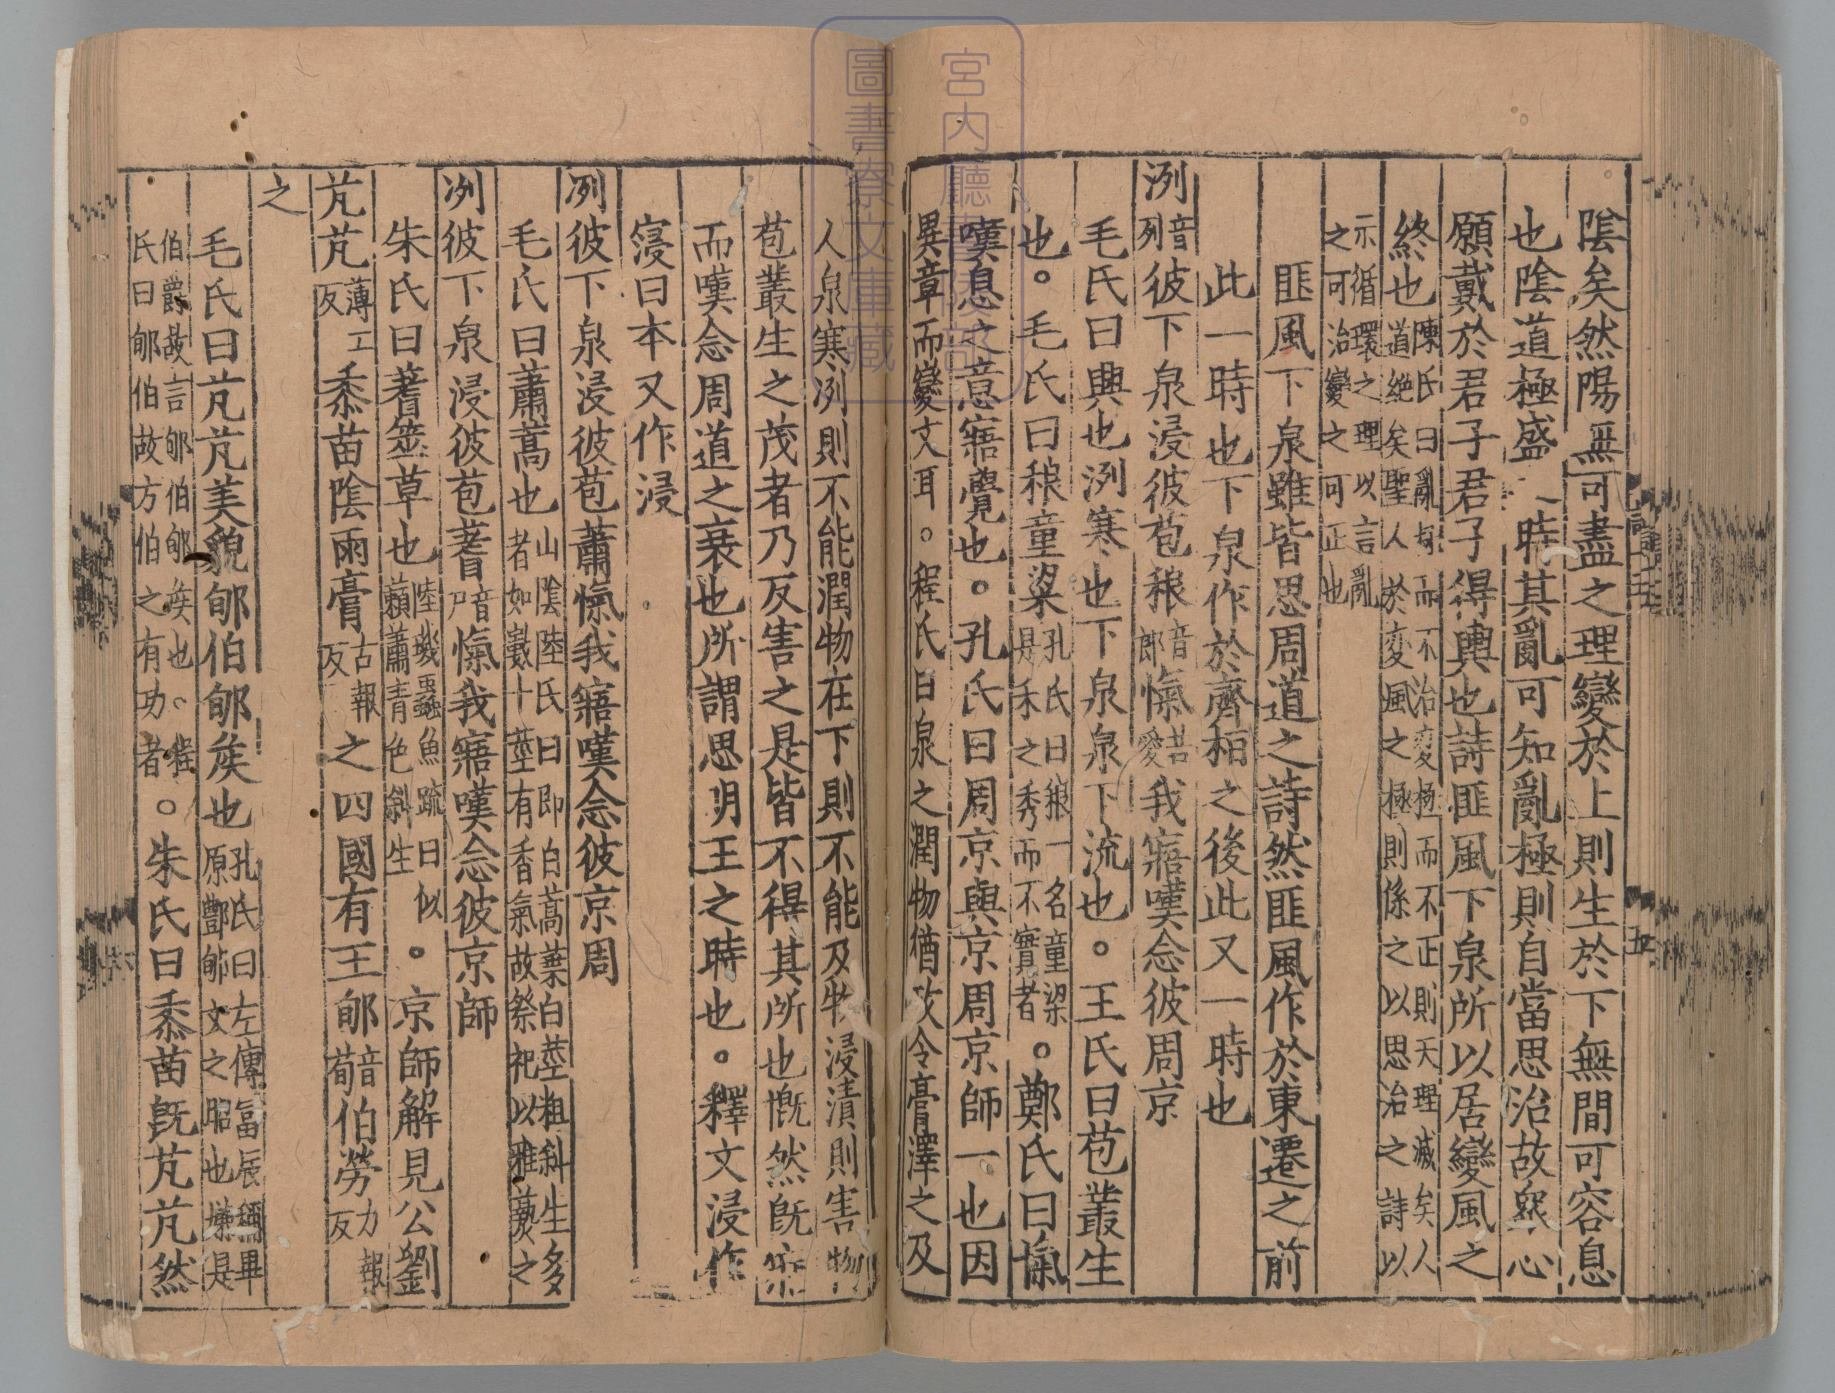 陰矣然陽無可盡之理變於上則生於下無間可容息
也陰道極盛 時其亂可知亂極則自當思治故衆心
願戴於君子君子得輿也詩匪風下泉所以居變風之
終也陳氏曰亂而不治變極而不正則天理滅矣人道絶矣聖人於変風之極則係之以思治之詩以
示循環之理以言亂之可治變之可正也
匪風下泉雖皆思周道之詩然匪風作於東遷之前
此一時也下泉作於齊桓之後此又一時也
洌音列彼下泉浸彼苞稂音郎愾苦愛我寤嘆念彼周京
毛氏曰興也洌寒也下泉泉下流也。王氏曰苞叢生
也。毛氏曰稂童粱孔氏曰稂一名童粱是禾之秀而不實者。鄭氏曰愾
嘆息之意寤覺也。孔氏曰周京與京周京師一也因
異章而變文耳。程氏曰泉之潤物猶政令膏澤之及
人泉寒冽則不能潤物在下則不能及物浸漬則害物
苞叢生之茂者乃反害之是皆不得其所也慨然既
而嘆念周道之衰也所謂思明王之時也。釋文浸作
寖曰本又作浸
冽彼下泉浸彼苞蕭愾我寤嘆念彼京周
毛氏曰蕭蒿也山陰陸氏曰即白蒿葉白莖粗斜生多者如數十莖有香氣故祭祀以雅爇之
冽彼下泉浸彼苞蓍音尸愾我寤嘆念彼京師
朱氏曰蓍筮草也陸璣蟲魚疏曰似藾蕭青色斜生。京師解見公劉
芃芃薄工反黍苗陰雨膏古報反之四國有王郇音荀伯勞力報反
之
毛氏曰芃芃美貌郇伯郇侯也孔氏曰左傳富辰稱畢原酆郇文之昭也 是
伯爵故言郇伯郇侯也。程氏曰郇伯故方伯之有功者。朱氏曰黍苗旣芃芃然
宮內廳
圖書寮文庫藏
五